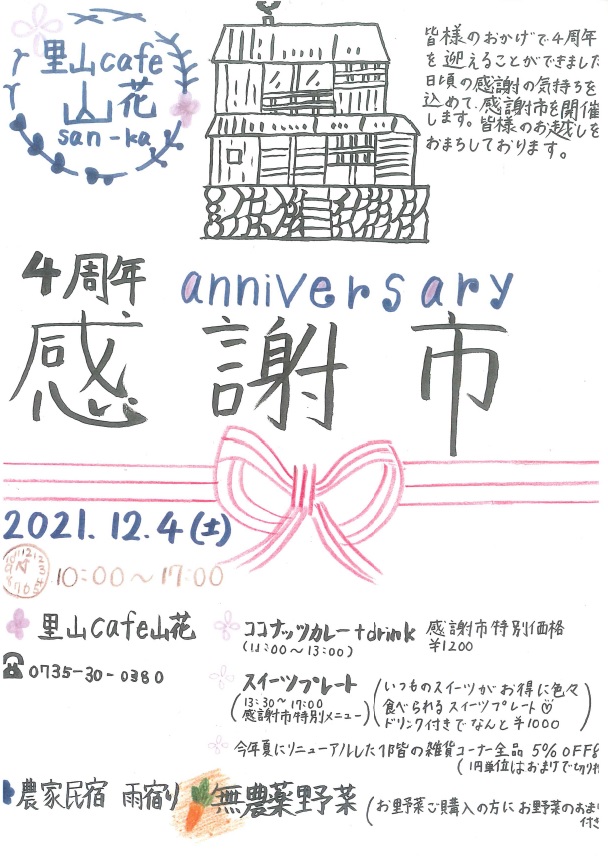 里山cafe
山花
san-ka
皆様のおかげで4周年
を迎えることができました
日頃の感謝の気持ちを
込めて、感謝市を開催
します。皆様のお越しを
おまちしております。
4周年 anniversary
感謝市
2021.12.4(土)
10:00〜17:00
里山cafe山花
☎0735-30-0380
ココナッツカレー+drink 感謝市特別価格
(11:00〜13:00) ¥1200
スイーツプレート
(13:30〜17:00
感謝市特別メニュー)
(いつものスイーツがお得に色々
食べられるスイーツプレート
ドリンク付きでなんと¥1000)
今年夏にリニューアルした1階の雑貨コーナー全品 5%OFF
(1円単位はおまけで切り
農家民宿 雨宿り 無農薬野菜 (お野菜ご購入の方にお野菜のおま
付き